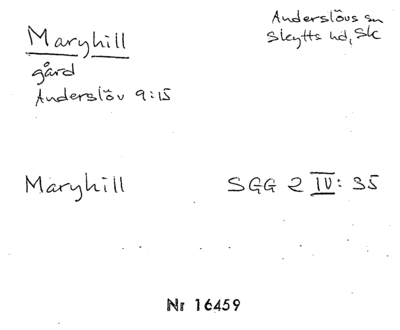 Maryhill
Anderslövs sn
Skytts hd, Sk
gård
Anderslöv 9:15
Maryhill
SGG 2 IV: 35
Nr 16459